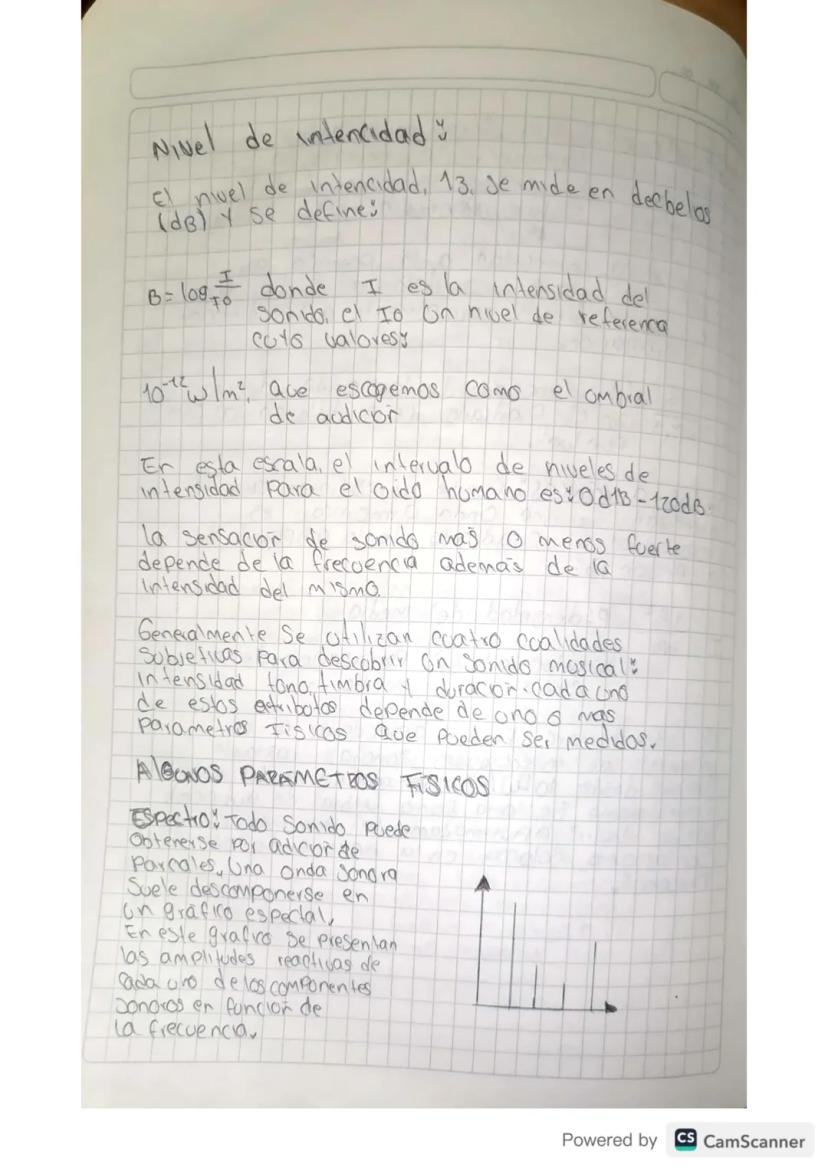 Nivel de intencidad:
El nivel de intencidad, 13, se mide en decbelos
(dB) Y se define:
B = log I/I0 donde I es la intensidad del
sonido, el I0 un nivel de referenca
cuyo valores:
10⁻¹² w/m², que escogemos como el ombral
de audicor
En esta escala, el intervalo de niveles de
intensidad para el oido humano es: 0d1B - 120dB.
la sensacior de sonido mas o menos fuerte
depende de la frecuencia ademas de la
intensidad del mismo.
Generalmente se utilizan cuatro cualidades
subjetivas para descobrir un sonido musical:
intensidad tono, timbra y duracior. cada uno
de estos atributos depende de uno o mas
parametros Fisicos que pueden ser medidos.
Algunos PARAMETROS FISICOS
Espectro: Todo sonido puede
Obtenerse por adicor de
Parcales, Una onda sonora
suele descomponerse en
un grafico espectal,
En este grafico se presentan
las amplitudes reactivas de
cada uno de los componentes
sonoros en funcior de
la frecuencia.
Powered by CS CamScanner